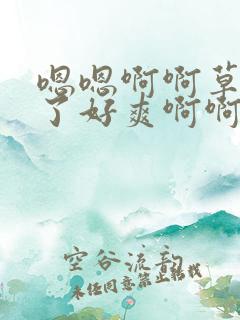 嗯嗯啊啊草
了好爽啊啊
空谷流韵
未经同意禁止转载